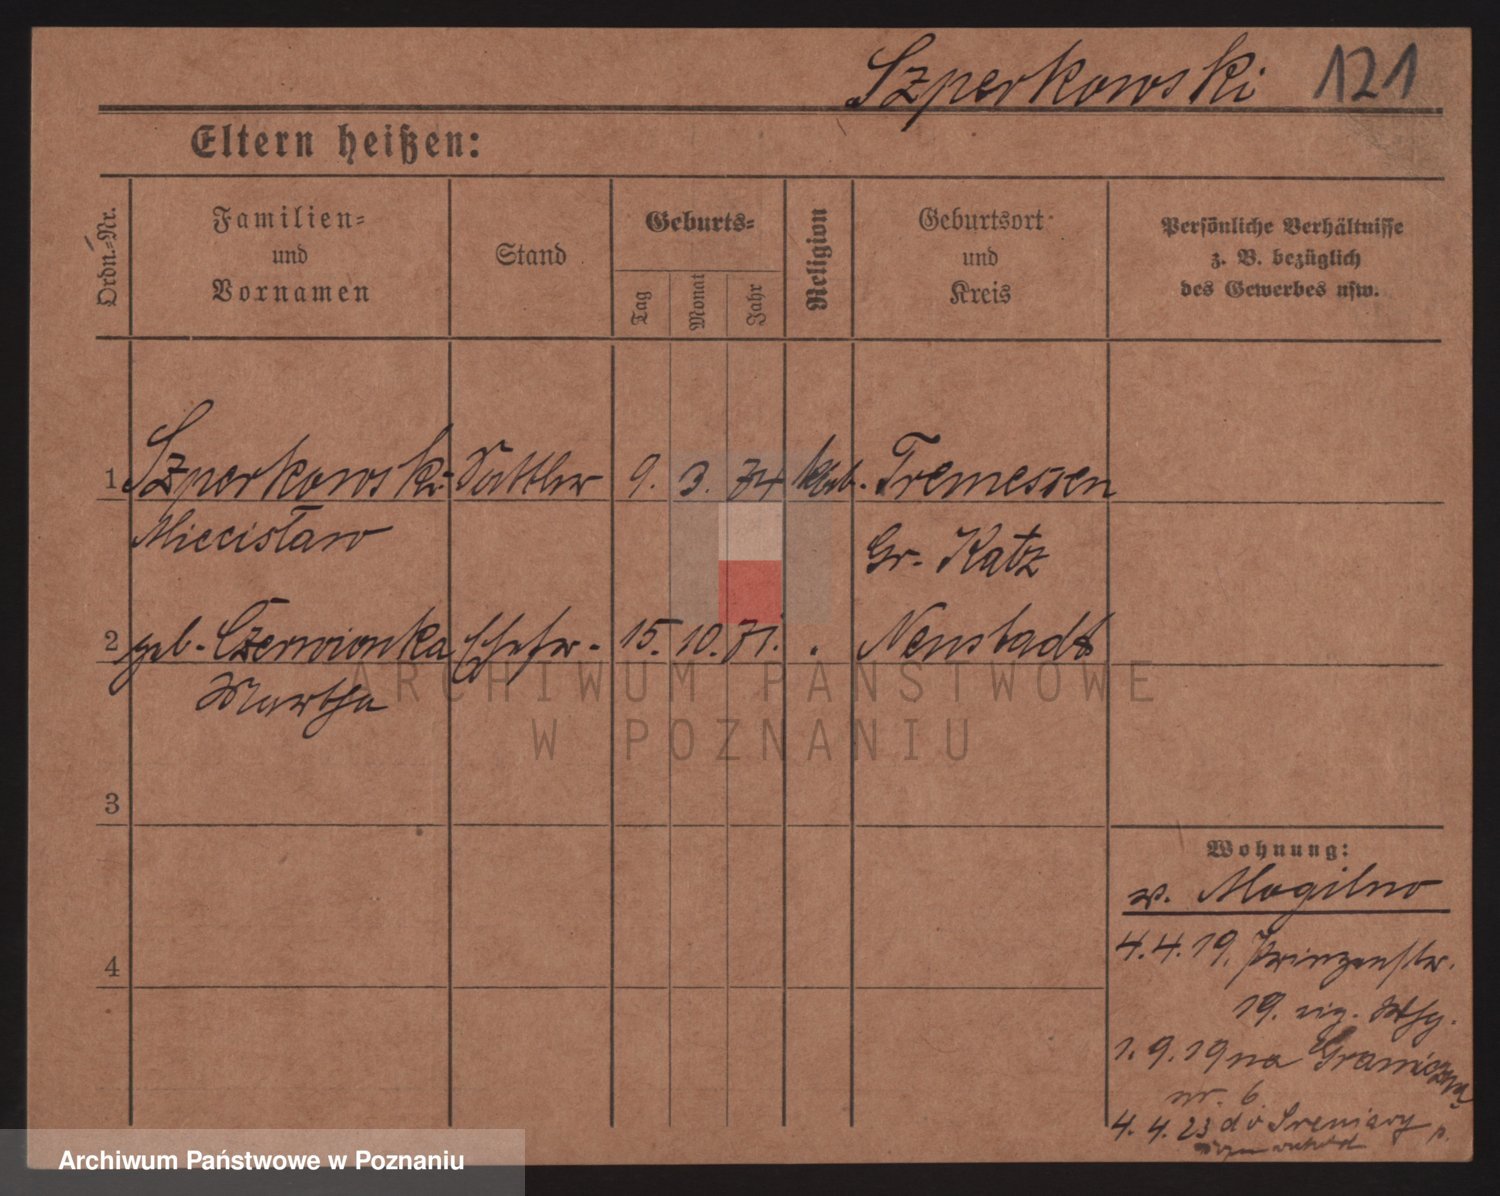 Szperkowski 121
Eltern heißen:
Ordn.-Nr.
Familien-
und
Vornamen
Stand
Geburts-
Tag
Monat
Jahr
Religion
Geburtsort
und
Kreis
Persönliche Verhältnisse
z. B. bezüglich
des Gewerbes usw.
1 Szperkowski Sattler 9. 3. 74 kath. Tremessen
Miecisław Gr. Katz
2 geb. Czerwionka Ehefr. 15. 10. 71. Neustadt
Martha
ARCHIWUM PAŃSTWOWE
W POZNANIU
3
4
Wohnung:
w. Mogilno
4.4.19. Prinzenstr.
19. eig. Whg.
1.9.19 na Graniczną
nr. 6
4.4.23 do Śremiary
Archiwum Państwowe w Poznaniu